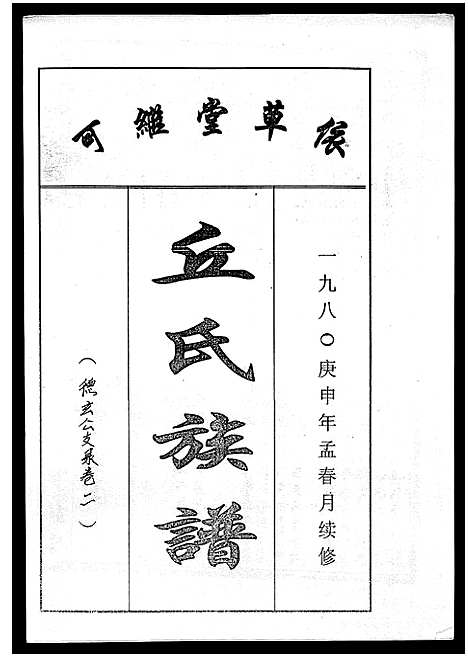 草堂維可
一九八〇庚申年孟春月续修
丘氏族譜
（德玄公支系卷二）